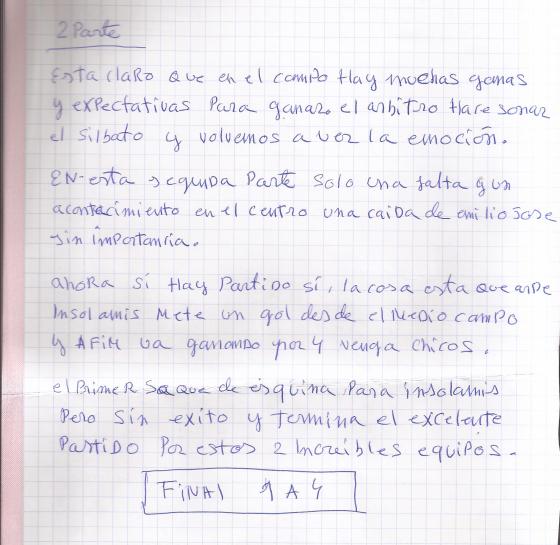 2 Parte
Esta claro que en el campo Hay muchas ganas
y expectativas Para ganar. el arbitro Hace sonar
el silbato y volvemos a ver la emoción.
EN esta segunda Parte solo una falta y un
acontecimiento en el centro una caida de emilio Jose
sin importancia.
ahora sí Hay Partido sí, la cosa esta que arde
Insolamis Mete un gol desde el Medio campo
y AFIM va ganando por 4 venga chicos.
el Primer Saque de esquina Para insolamis
Pero Sin exito y termina el excelente
Partido Por estos 2 Increíbles equipos.
FINAl 1 A 4